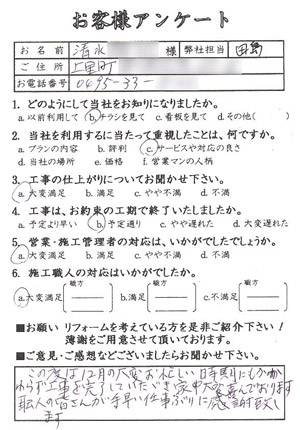 お客様アンケート
お名前 清水 様 弊社担当 田島
ご住所 上里町
お電話番号 0495-33-
1. どのようにして当社をお知りになりましたか。
a.以前利用して b.チラシを見て c.看板を見て d.その他( )
2. 当社を利用するに当たって重視したことは、何ですか。
a.プランの内容 b.評判 c.サービスや対応の良さ
d.当社の場所 e.価格 f.営業マンの人柄
3. 工事の仕上がりについてお聞かせ下さい。
a.大変満足 b.満足 c.やや不満 d.不満
4. 工事は、お約束の工期で終了いたしましたか。
a.予定より早い b.予定通り c.やや遅れた d.大変遅れた
5. 営業・施工管理者の対応は、いかがでしたでしょうか。
a.大変満足 b.満足 c.やや不満 d.不満
6. 施工職人の対応はいかがでしたか。
a.大変満足〔職方 〕 b.満足〔職方 〕 c.不満〔職方 〕
■お願い リフォームを考えている方を是非ご紹介下さい!
薄謝をご用意させて頂いております。
■ご意見・ご感想などございましたらお聞かせ下さい。
この度は12月の大変お忙しい日時にもかか
わらず工事を完了していただき家中大変喜んでおります
職人の皆さんが手早い仕事ぶりに感謝致し
ます